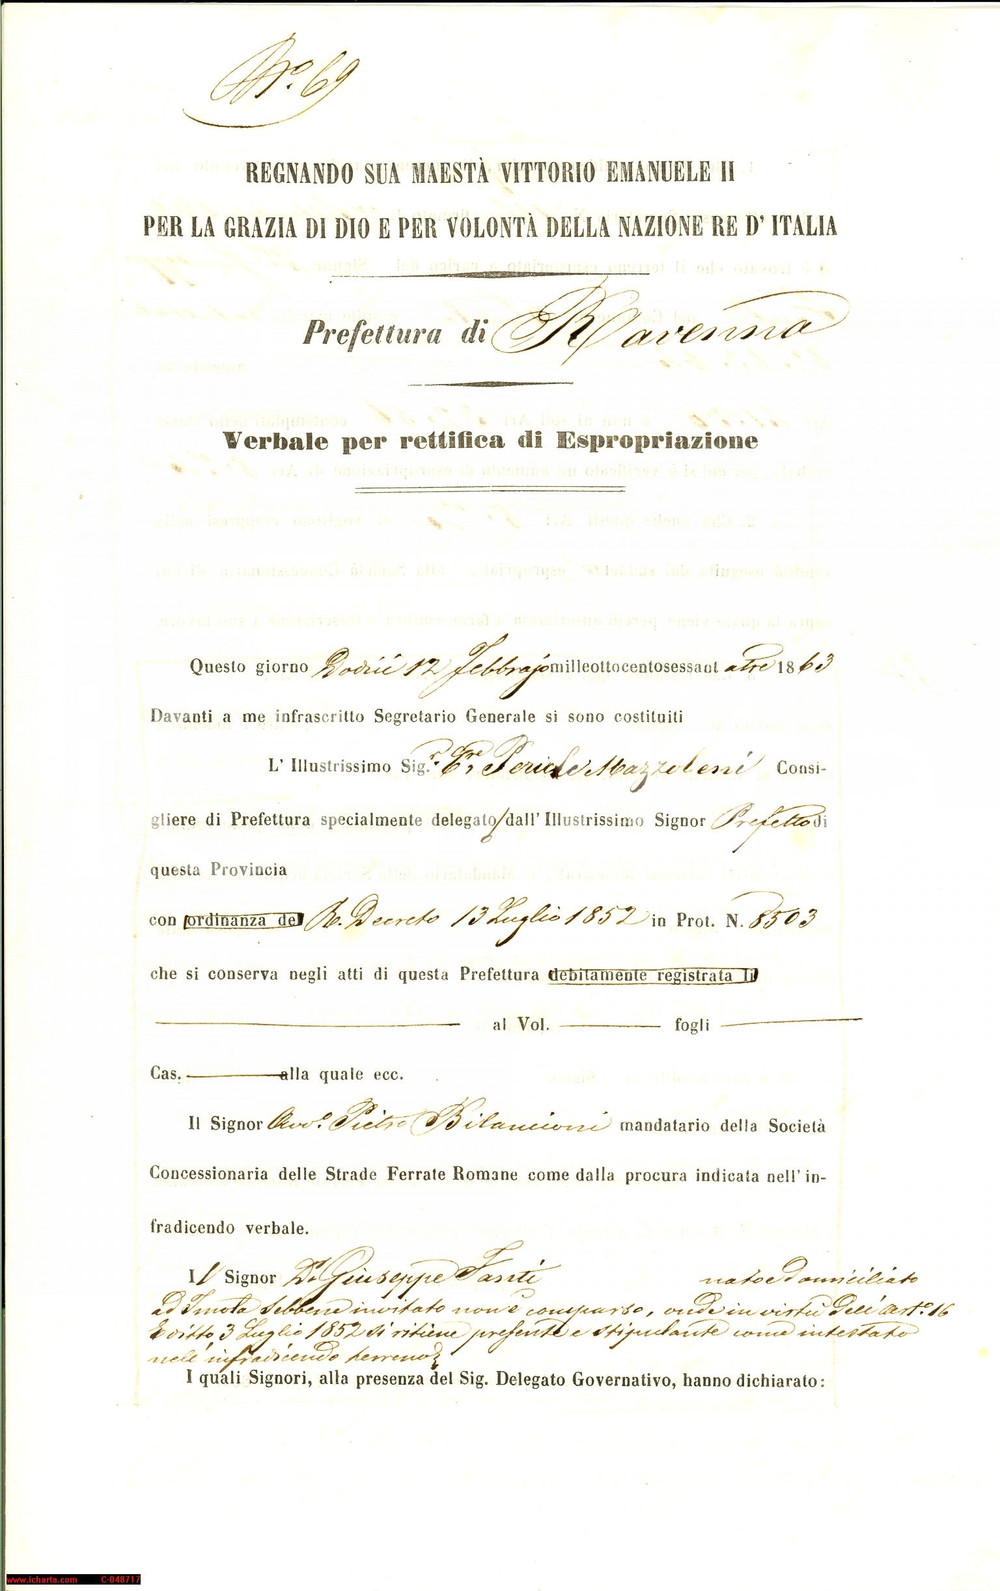 No. 69
REGNANDO SUA MAESTÀ VITTORIO EMANUELE II
PER LA GRAZIA DI DIO E PER VOLONTÀ DELLA NAZIONE RE D' ITALIA
Prefettura di Ravenna
Verbale per rettifica di Espropriazione
Questo giorno Dodici 12 Febbrajo milleottocentosessant atre 1863
Davanti a me infrascritto Segretario Generale si sono costituiti
L' Illustrissimo Sig.r Pericle Mazzoleni Consi-
gliere di Prefettura specialmente delegato dall' Illustrissimo Signor Prefetto di
questa Provincia
con ordinanza del R. Decreto 13 Luglio 1852 in Prot. N. 8503
che si conserva negli atti di questa Prefettura debitamente registrata li
al Vol. fogli
Cas. alla quale ecc.
Il Signor Avv.o Pietro Bilancioni mandatario della Società
Concessionaria delle Strade Ferrate Romane come dalla procura indicata nell' in-
fradicendo verbale.
Il Signor D.r Giuseppe Fanti nato e domiciliato
ad Imola sebbene invitato non è comparso, onde in virtù dell' Art.o 16
Editto 3 Luglio 1852 si ritiene presente e stipulante come intestato
nell' infradicendo terreno
I quali Signori, alla presenza del Sig. Delegato Governativo, hanno dichiarato:
www.icharta.com C-048717